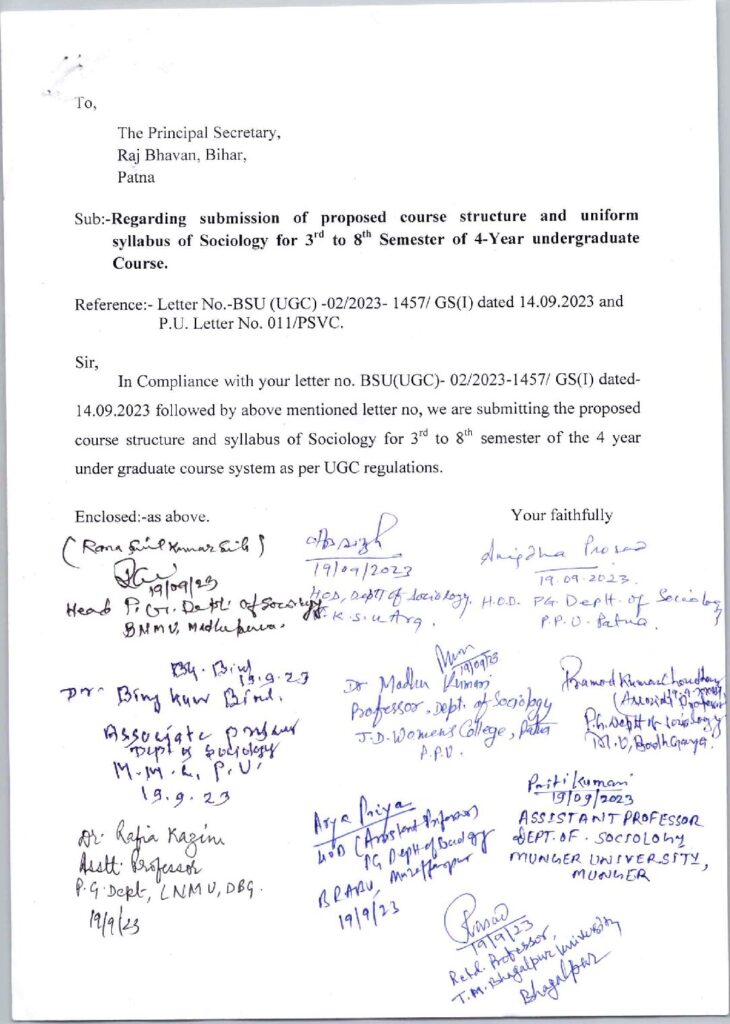 To,
The Principal Secretary,
Raj Bhavan, Bihar,
Patna
Sub:-Regarding submission of proposed course structure and uniform
syllabus of Sociology for 3rd to 8th Semester of 4-Year undergraduate
Course.
Reference:- Letter No.-BSU (UGC) -02/2023- 1457/ GS(I) dated 14.09.2023 and
P.U. Letter No. 011/PSVC.
Sir,
In Compliance with your letter no. BSU(UGC)- 02/2023-1457/ GS(I) dated-
14.09.2023 followed by above mentioned letter no, we are submitting the proposed
course structure and syllabus of Sociology for 3rd to 8th semester of the 4 year
under graduate course system as per UGC regulations.
Enclosed:-as above.
Your faithfully
(Rana Sunil Kumar Singh)
19/09/23
Head P.G. Deptt. of Sociology
BNMU, Madhepura.
19/09/2023
HOD, Deptt of Sociology.
Snigdha Prasad
19.09.2023.
H.O.D. PG Deptt. of Sociology
P.P.U. Patna.
19.9.23
Dr.
Associate
Dept of Sociology
M.M.C, P.U.
19.9.23
19/09/23
Dr Madhu Kumari
Professor, Dept. of Sociology
J.D. Womens College, Patna
P.P.U.
Pramod Kumar Choudhary
P.G. Deptt of Sociology
M.U, BodhGaya.
Dr. Rafia Kazim
Asstt. Professor
P.G. Dept, LNMU, DBG.
19/9/23
Arya Priya
HOD (Assistant Professor)
PG Deptt of Sociology
BRABU, Muzaffarpur
19/9/23
Priti Kumari
19/09/2023
ASSISTANT PROFESSOR
DEPT. OF. SOCIOLOGY
MUNGER UNIVERSITY,
MUNGER
Prasad
19/9/23
Retd. Professor,
T.M. Bhagalpur University
Bhagalpur